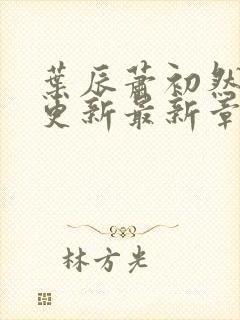 葉辰蕭初然
更新最新章
林方光